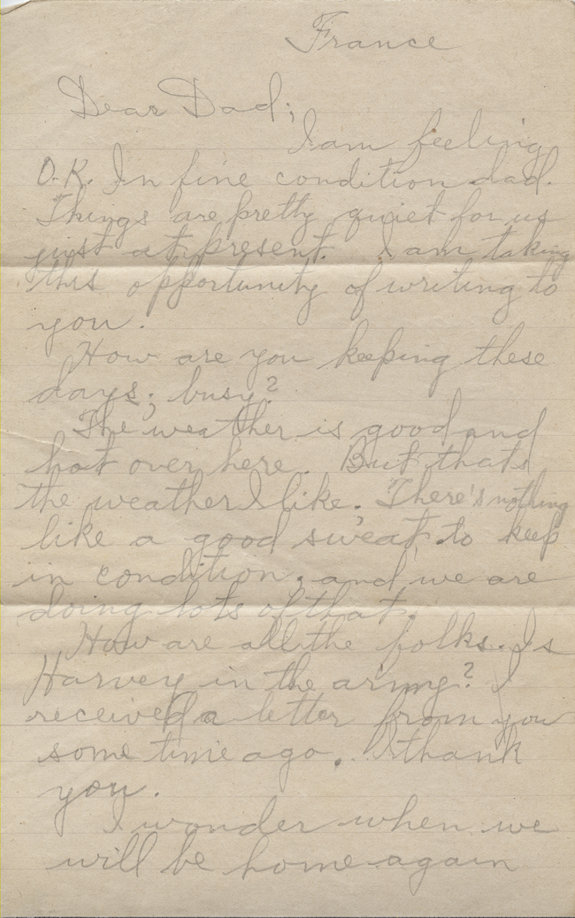 France
Dear Dad;
I am feeling
O.K. In fine condition dad.
Things are pretty quiet for us
just at present. I am taking
this opportunity of writing to
you.
How are you keeping these
days; busy?
The weather is good and
hot over here. But that's
the weather I like. There's nothing
like a good sweat to keep
in condition, and we are
doing lots of that.
How are all the folks. Is
Harvey in the army? I
received a letter from you
some time ago. I thank
you.
I wonder when we
will be home again